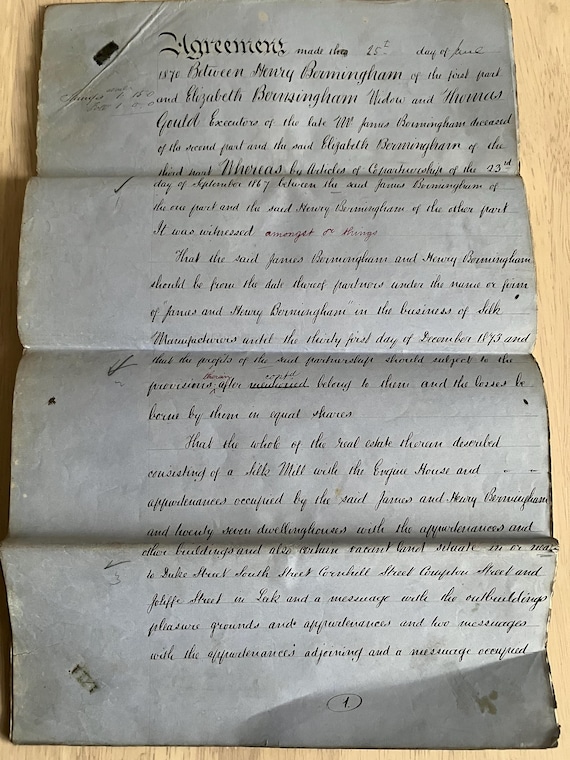 Agreement made this 25th day of June
1870 Between Henry Bermingham of the first part
and Elizabeth Bermingham Widow and Thomas
Gould Executors of the late Mr James Bermingham deceased
of the second part and the said Elizabeth Bermingham of the
third part Whereas by Articles of Copartnership of the 23rd
day of September 1867 between the said James Bermingham of
the one part and the said Henry Bermingham of the other part
It was witnessed amongst or things
That the said James Bermingham and Henry Bermingham
should be from the date thereof partners under the name or firm
of "James and Henry Bermingham" in the business of Silk
Manufacturers until the thirty first day of December 1873 and
that the profits of the said partnership should subject to the
provisions therein after mentioned belong to them and the losses be
borne by them in equal shares
That the whole of the real estate therein described
consisting of a Silk Mill with the Engine House and
appurtenances occupied by the said James and Henry Bermingham
and twenty seven dwellinghouses with the appurtenances and
other buildings and also certain vacant land situate in or near
to Duke Street South Street Cornhill Street Compton Street and
Joliffe Street in Leek and a messuage with the outbuildings
pleasure grounds and appurtenances and two messuages
with the appurtenances adjoining and a messuage occupied
1